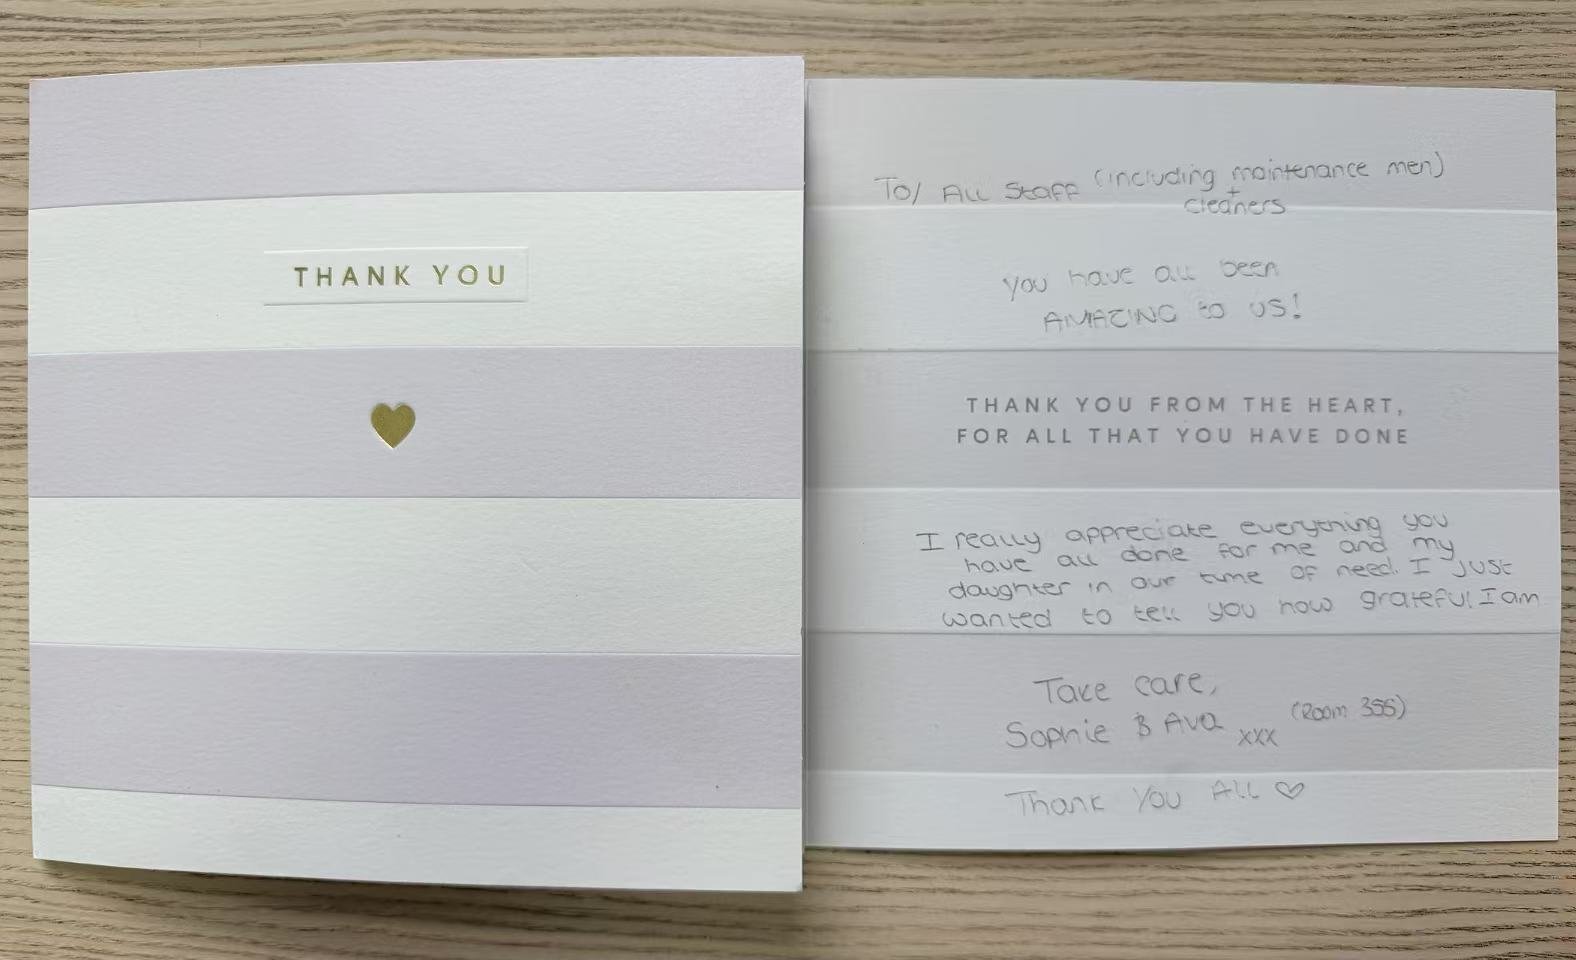 THANK YOU
To/ All Staff (including maintenance men)
+
cleaners
You have all been
AMAZING to US!
THANK YOU FROM THE HEART,
FOR ALL THAT YOU HAVE DONE
I really appreciate everything you
have all done for me and my
daughter in our time of need. I just
wanted to tell you how grateful I am
Take care,
Sophie & Ava xxx (Room 355)
Thank You All ♡